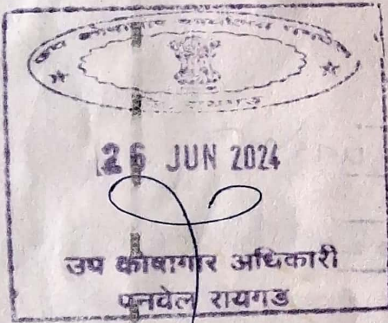 उप कोषागार कार्यालय पनवेल
जि. रायगड
26 JUN 2024
उप कोषागार अधिकारी
पनवेल रायगड